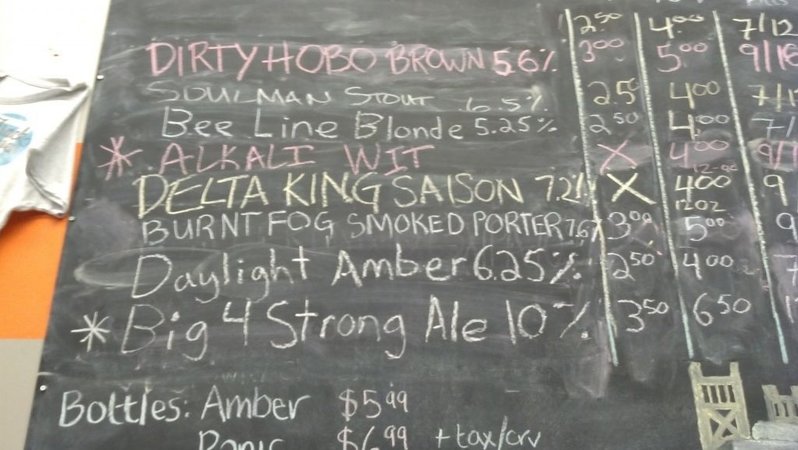 2.50 4.00 7/12
DIRTY HOBO BROWN 5.6% 3.00 5.00 9/16
SOULMAN STOUT 6.5% 2.5 4.00
Bee Line Blonde 5.25% 2.50 4.00 7/
* ALKALI WIT X 4.00 9/
DELTA KING SAISON 7.2% X 4.00 9
12OZ
BURNT FOG SMOKED PORTER 7.6% 3.00 5.00 9
Daylight Amber 6.25% 2.50 4.00 7
* Big 4 Strong Ale 10% 3.50 6.50
Bottles: Amber $5.99
Panic $6.99 + tax/crv